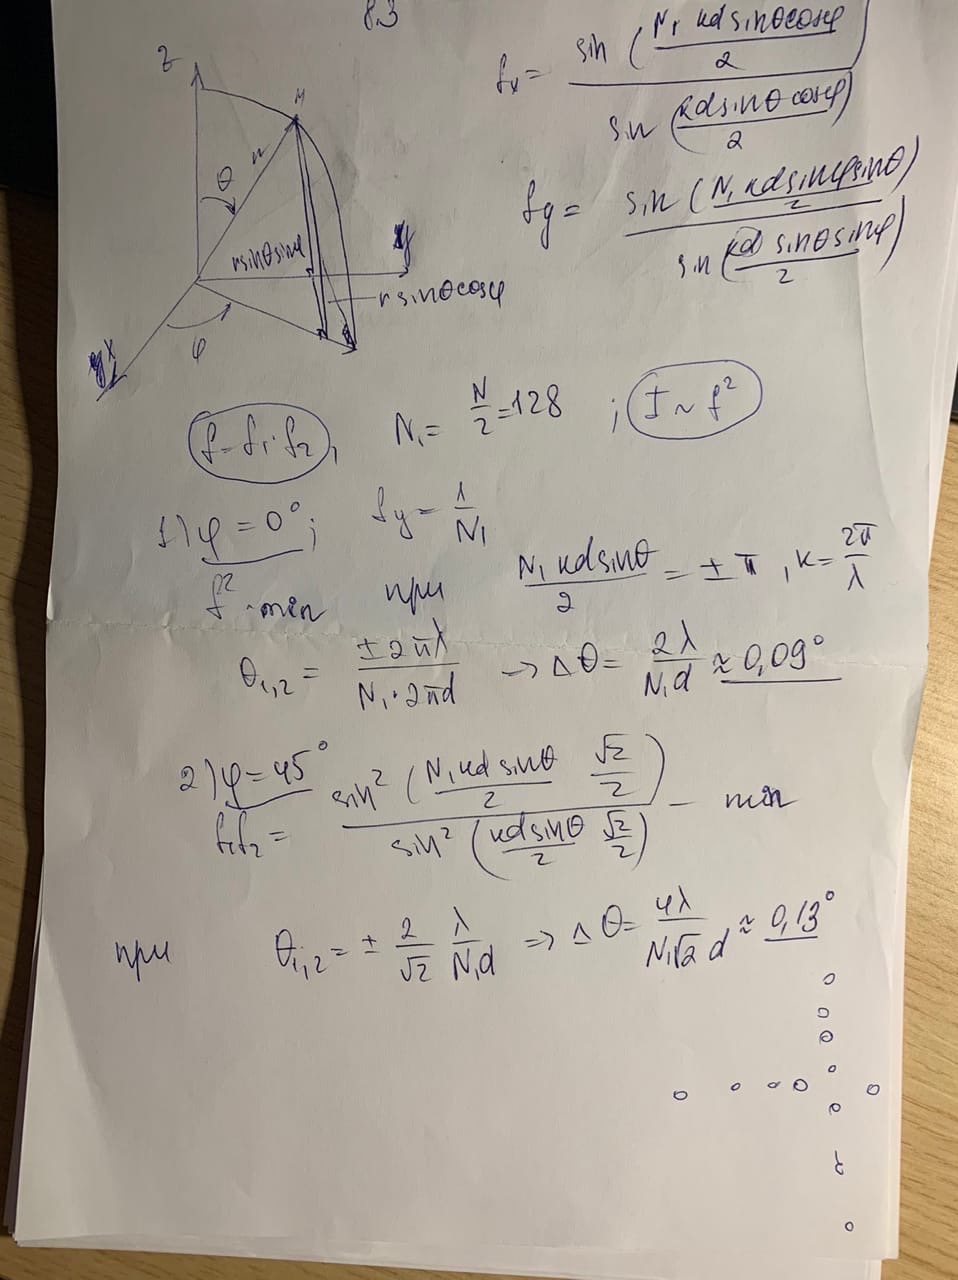 8.3
z
M
r
θ
y
r sinθ sinφ
r sinθ cosφ
φ
x
f_x = sin (N₁ kd sinθ cosφ / 2) / sin (kd sinθ cosφ / 2)
f_y = sin (N₁ kd sinφ sinθ / 2) / sin (kd sinθ sinφ / 2)
f = f₁·f₂, N₁ = N/2 = 128 ; I ~ f²
1) φ = 0°; f_y = 1/N₁
f² - min при N₁ kd sinθ / 2 = ± π, k = 2π/λ
θ₁,₂ = ±2πλ / N₁·2πd → Δθ = 2λ / N₁d ≈ 0,09°
2) φ = 45°
f₁f₂ = sin² (N₁ kd sinθ / 2 √2/2) / sin² (kd sinθ / 2 √2/2) - min
при θ₁,₂ = ± 2/√2 λ/N₁d ⇒ Δθ = 4λ / N₁√2 d ≈ 0,13°